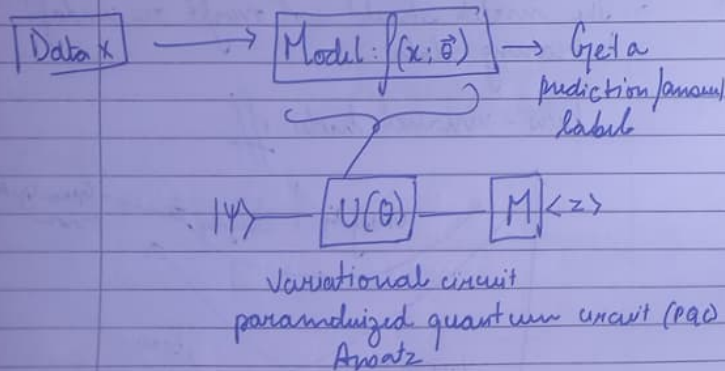 Data x
Model: f(x; θ⃗)
Get a
prediction/answer/
label
|Ψ⟩
U(θ)
M
<z>
Variational circuit
parameterized quantum circuit (PQC)
Ansatz